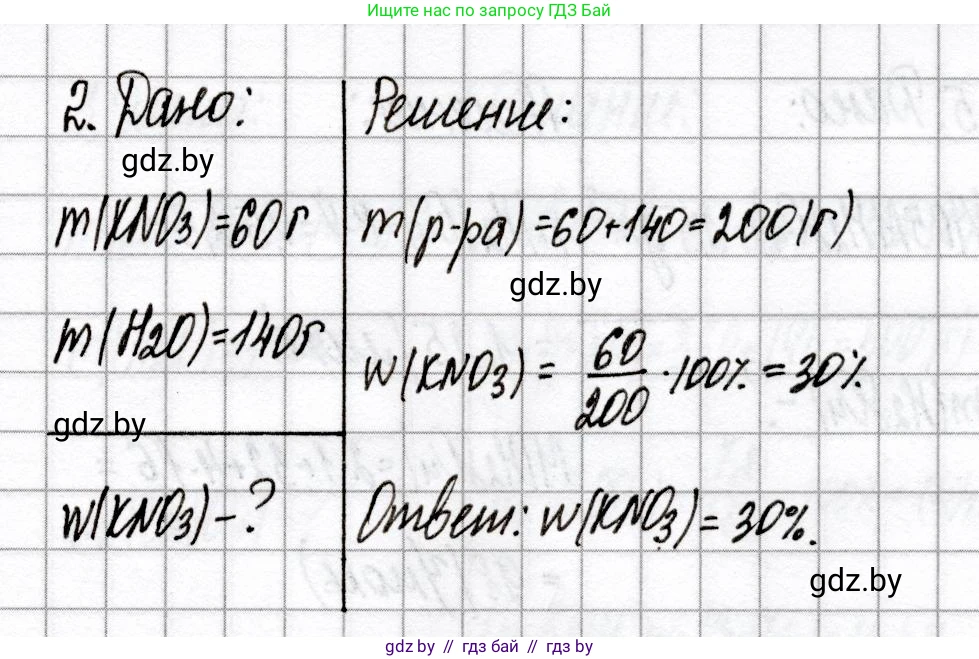 Ищите нас по запросу ГДЗ Бай
2. Дано:
gdz.by
m(KNO3)=60г
m(H2O)=140г
gdz.by
w(KNO3)-?
Решение:
m(р-ра)=60+140=200(г)
gdz.by
w(KNO3) = 60/200 · 100% = 30%
Ответ: w(KNO3)=30%.
gdz.by
gdz.by // гдз бай // гдз by